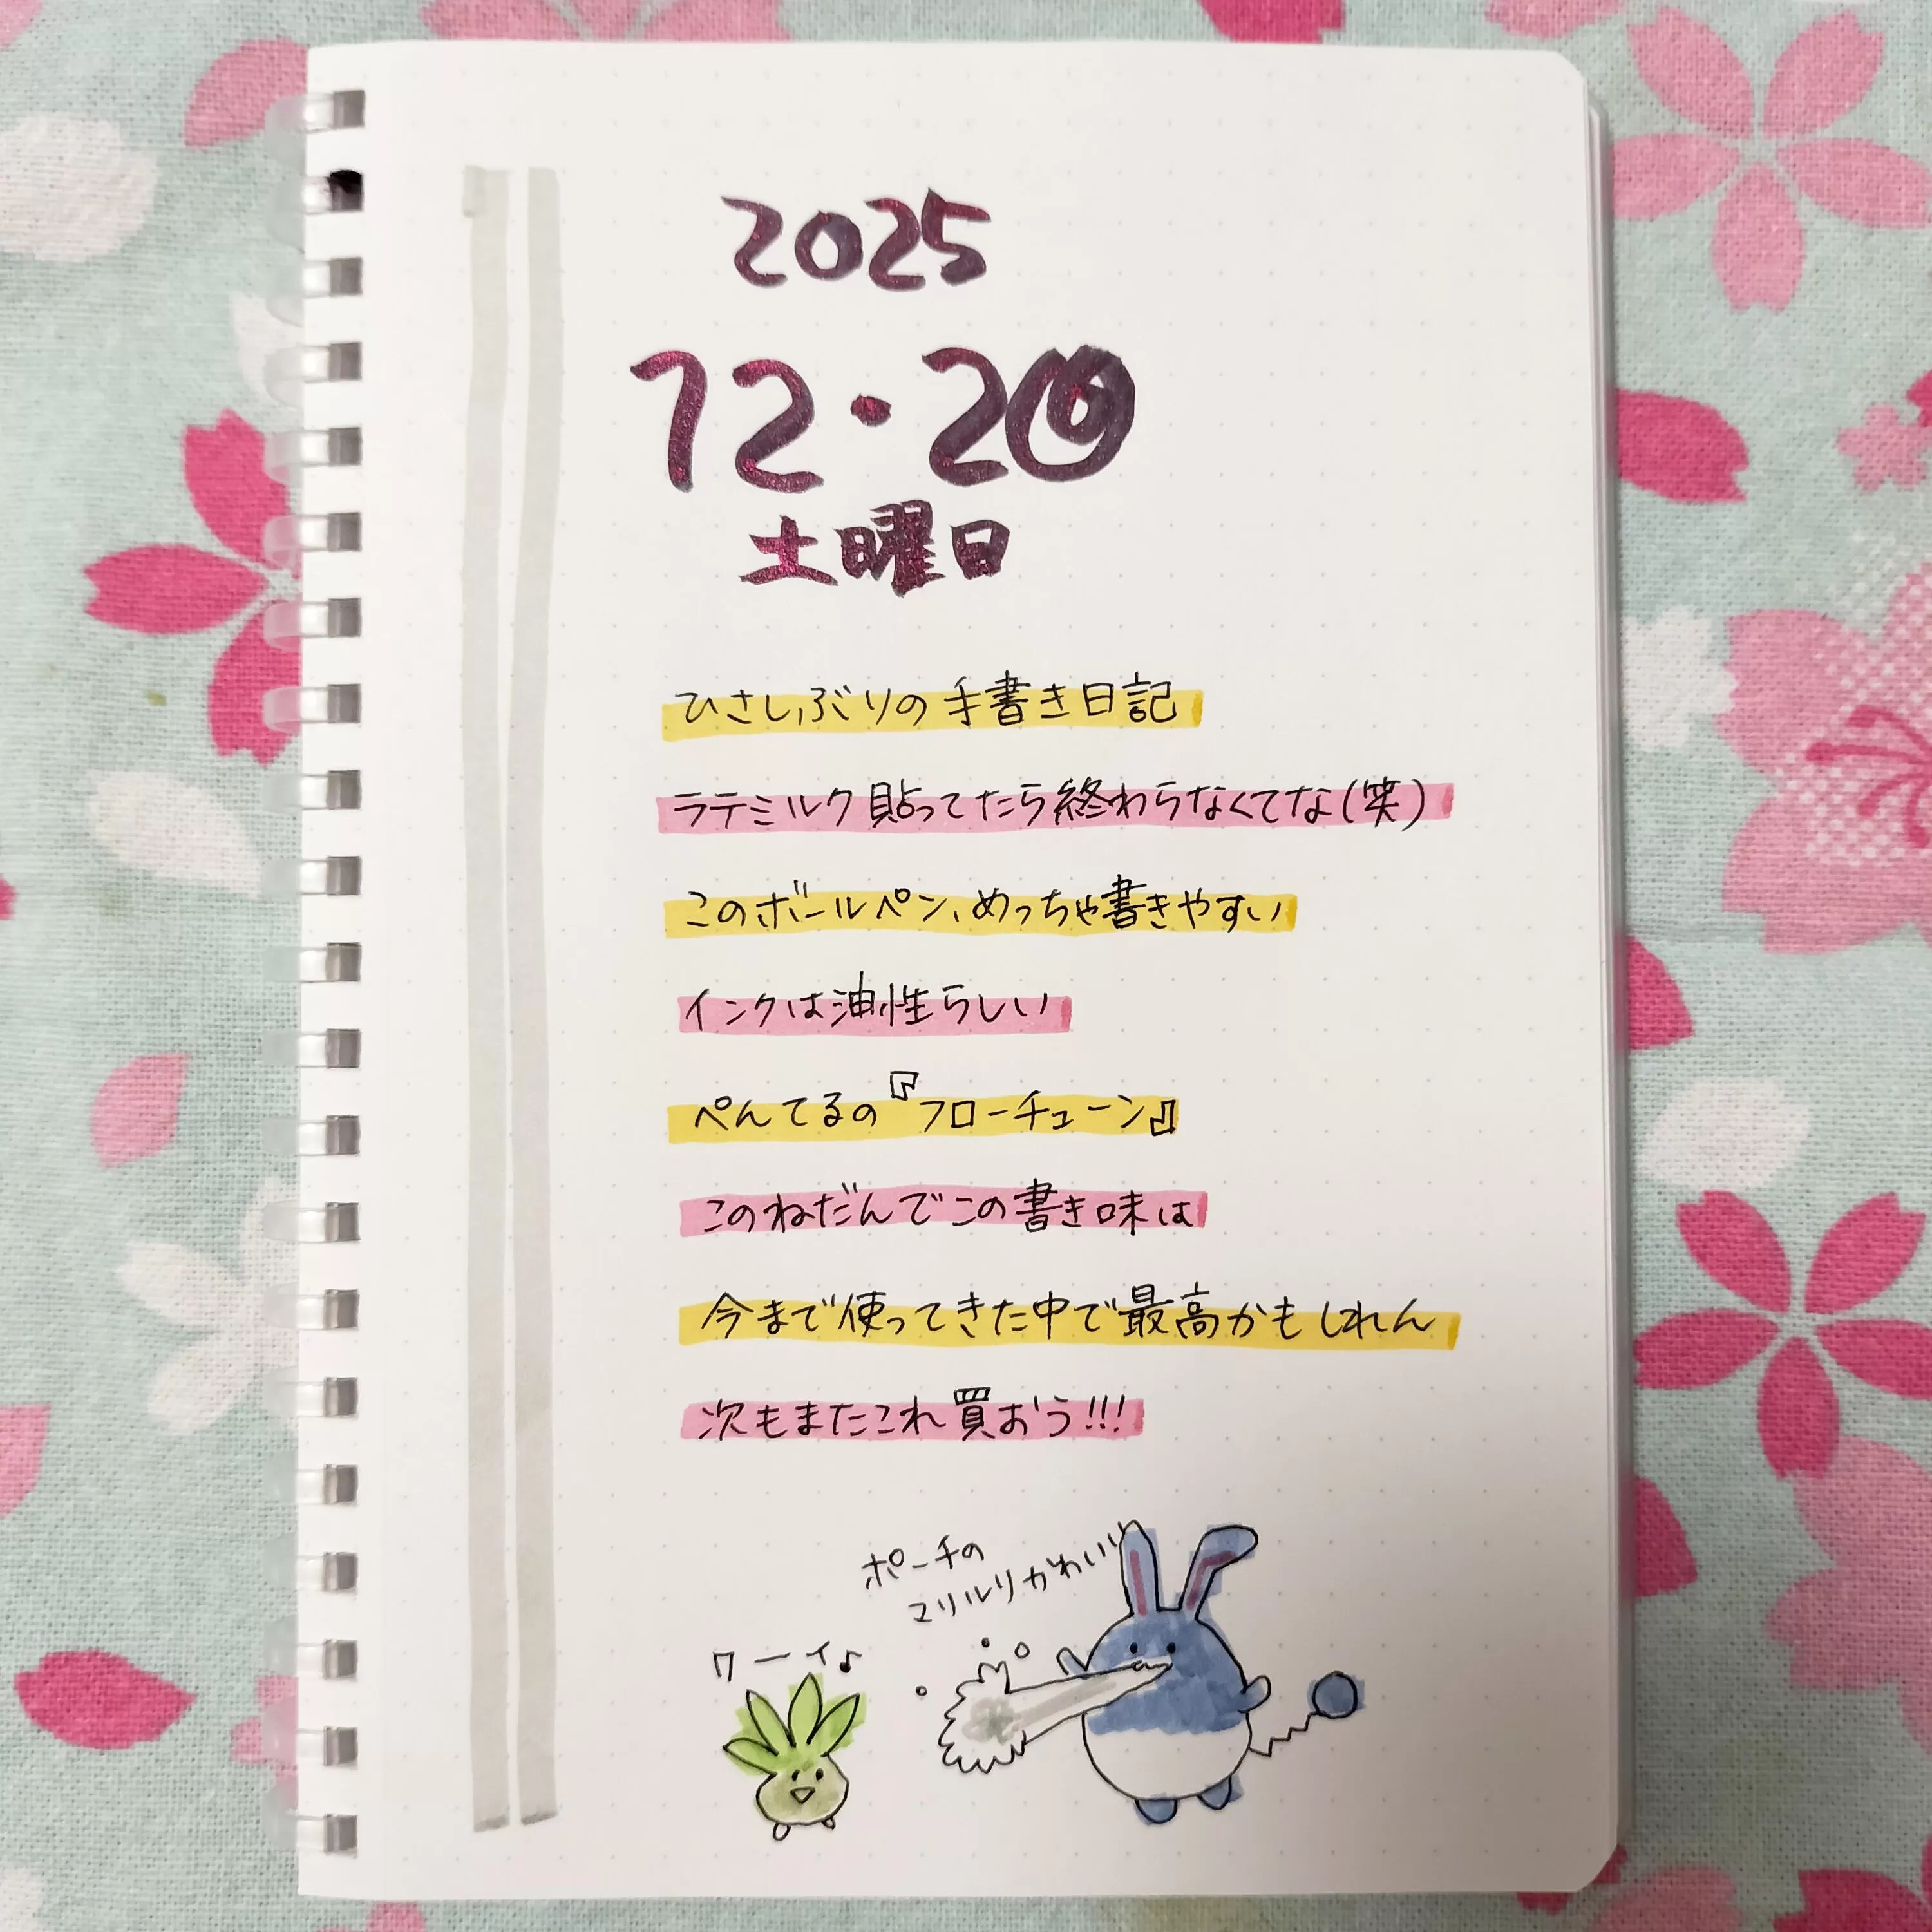 2025
12・20
土曜日
ひさしぶりの手書き日記
ラテミルク貼ってたら終わらなくてな(笑)
このボールペン、めっちゃ書きやすい
インクは油性らしい
ぺんてるの『フローチューン』
このねだんでこの書き味は
今まで使ってきた中で最高かもしれん
次もまたこれ買おう!!!
ポーチの
マリルリかわいい
ワーイ♪